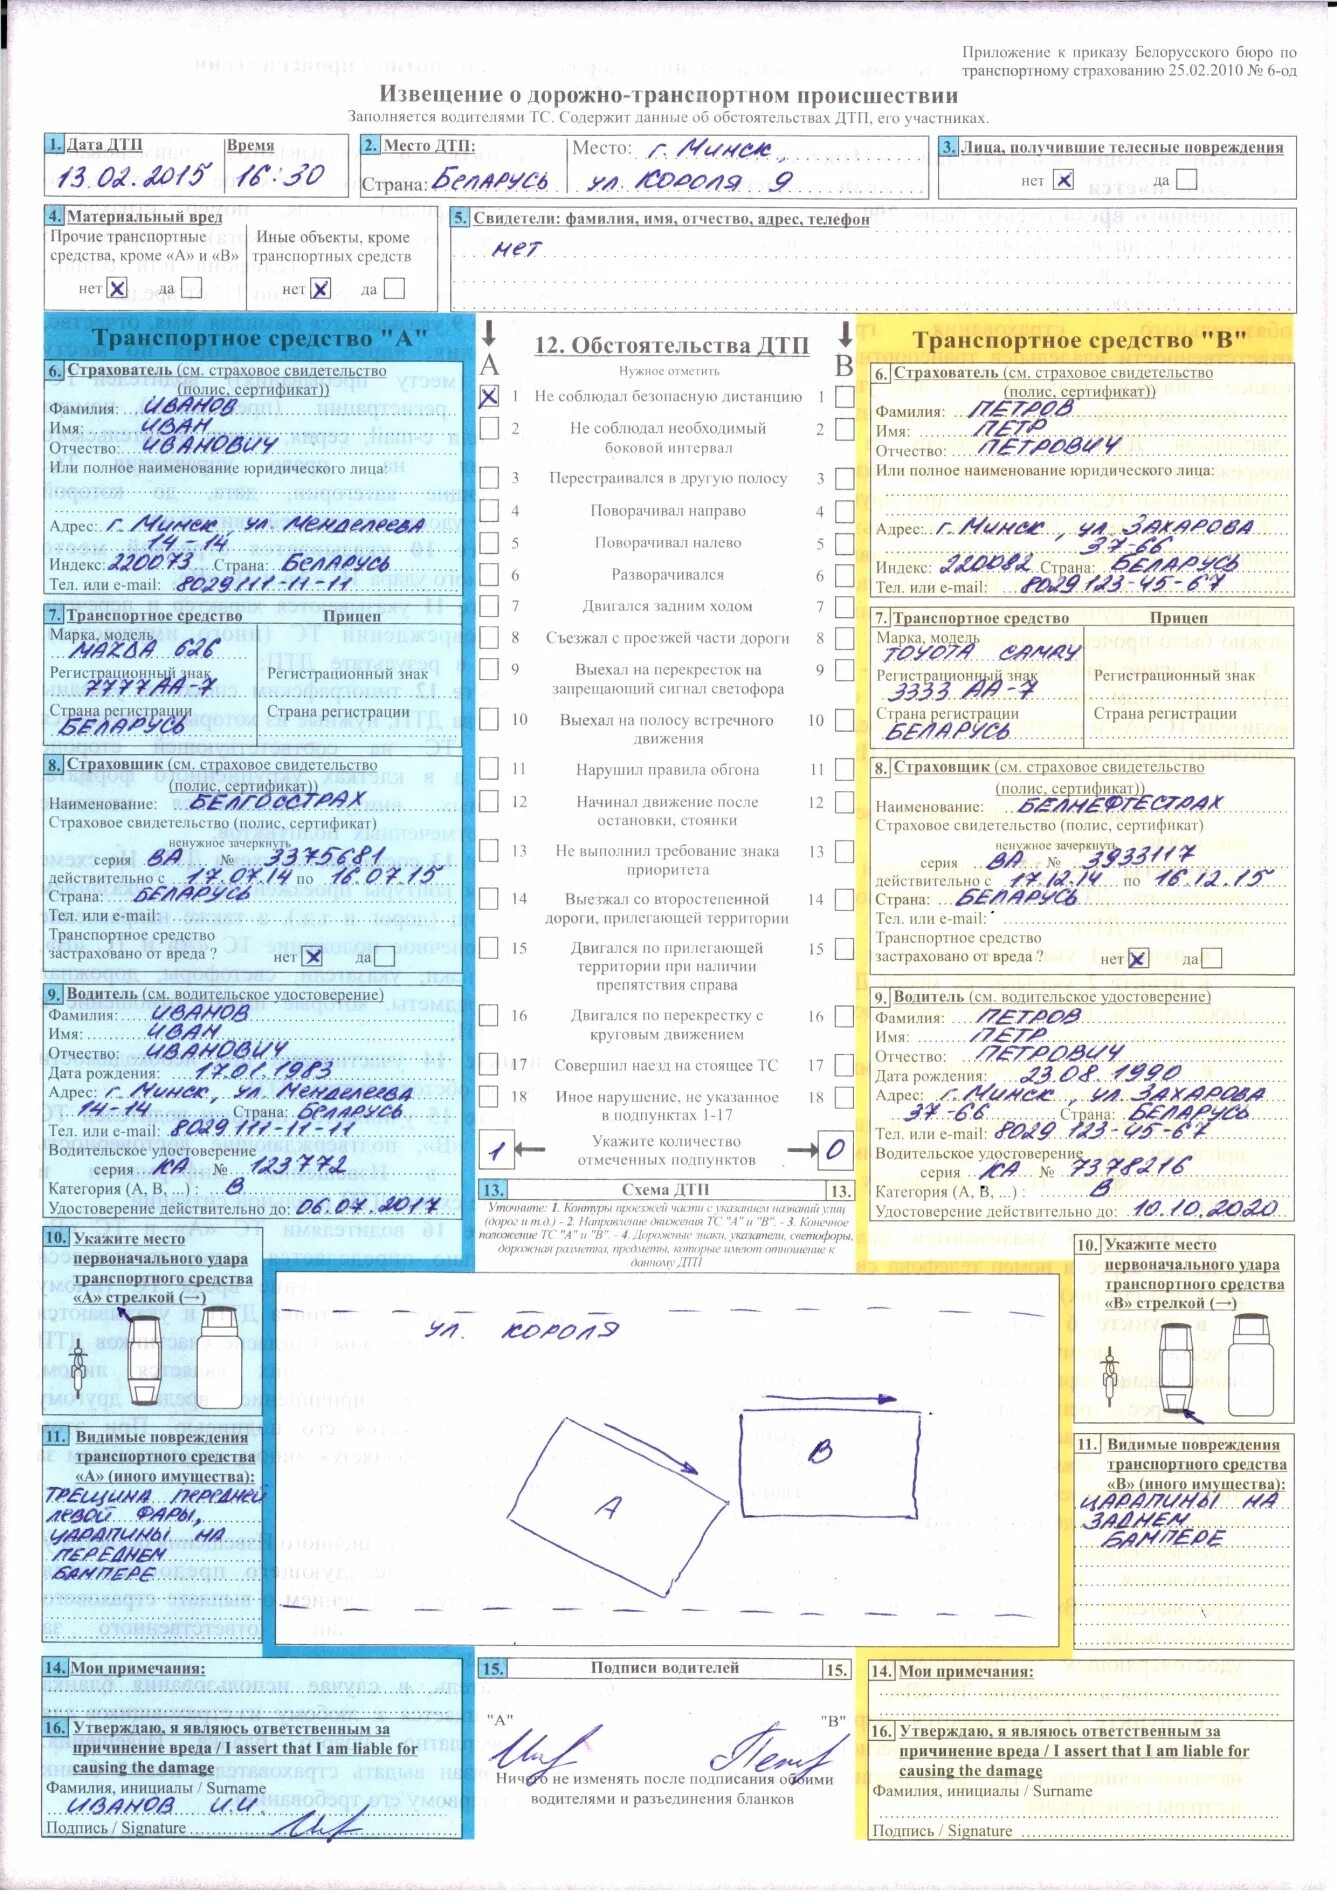 Приложение к приказу Белорусского бюро по
транспортному страхованию 25.02.2010 № 6-од
Извещение о дорожно-транспортном происшествии
Заполняется водителями ТС. Содержит данные об обстоятельствах ДТП, его участниках.
1. Дата ДТП Время
13.02.2015 16:30
2. Место ДТП: Место: г. Минск,
Страна: Беларусь ул. Короля 9
3. Лица, получившие телесные повреждения
нет X да
4. Материальный вред
Прочие транспортные средства, кроме «А» и «В»
нет X да
Иные объекты, кроме транспортных средств
нет X да
5. Свидетели: фамилия, имя, отчество, адрес, телефон
нет
Транспортное средство "А"
6. Страхователь (см. страховое свидетельство
(полис, сертификат))
Фамилия: Иванов
Имя: Иван
Отчество: Иванович
Или полное наименование юридического лица:
Адрес: г. Минск, ул. Менделеева
14-14
Индекс: 220073 Страна: Беларусь
Тел. или e-mail: 8029 111-11-11
7. Транспортное средство Прицеп
Марка, модель
MAZDA 626
Регистрационный знак Регистрационный знак
7777 АА-7
Страна регистрации Страна регистрации
БЕЛАРУСЬ
8. Страховщик (см. страховое свидетельство
(полис, сертификат))
Наименование: БЕЛГОССТРАХ
Страховое свидетельство (полис, сертификат)
ненужное зачеркнуть
серия ВА № 3375681
действительно с 17.07.14 по 16.07.15
Страна: БЕЛАРУСЬ
Тел. или e-mail:
Транспортное средство
застраховано от вреда ? нет X да
9. Водитель (см. водительское удостоверение)
Фамилия: ИВАНОВ
Имя: ИВАН
Отчество: ИВАНОВИЧ
Дата рождения: 17.01.1983
Адрес: г. Минск, ул. Менделеева
14-14 Страна: Беларусь
Тел. или e-mail: 8029 111-11-11
Водительское удостоверение
серия КА № 123772
Категория (А, В, ...) : В
Удостоверение действительно до: 06.07.2017
10. Укажите место
первоначального удара
транспортного средства
«А» стрелкой (→)
11. Видимые повреждения
транспортного средства
«А» (иного имущества):
ТРЕЩИНА ПЕРЕДНЕЙ
ЛЕВОЙ ФАРЫ,
ЦАРАПИНЫ НА
ПЕРЕДНЕМ
БАМПЕРЕ
14. Мои примечания:
16. Утверждаю, я являюсь ответственным за
причинение вреда / I assert that I am liable for
causing the damage
Фамилия, инициалы / Surname
ИВАНОВ И.И.
Подпись / Signature
А В
12. Обстоятельства ДТП
Нужное отметить
X 1 Не соблюдал безопасную дистанцию 1
2 Не соблюдал необходимый 2
боковой интервал
3 Перестраивался в другую полосу 3
4 Поворачивал направо 4
5 Поворачивал налево 5
6 Разворачивался 6
7 Двигался задним ходом 7
8 Съезжал с проезжей части дороги 8
9 Выехал на перекресток на 9
запрещающий сигнал светофора
10 Выехал на полосу встречного 10
движения
11 Нарушил правила обгона 11
12 Начинал движение после 12
остановки, стоянки
13 Не выполнил требование знака 13
приоритета
14 Выезжал со второстепенной 14
дороги, прилегающей территории
15 Двигался по прилегающей 15
территории при наличии
препятствия справа
16 Двигался по перекрестку с 16
круговым движением
17 Совершил наезд на стоящее ТС 17
18 Иное нарушение, не указанное 18
в подпунктах 1-17
1 Укажите количество 0
отмеченных подпунктов
13. Схема ДТП 13.
Уточните: 1. Контуры проезжей части с указанием названий улиц
(дорог и т.д.) - 2. Направление движения ТС "А" и "В". - 3. Конечное
положение ТС "А" и "В". - 4. Дорожные знаки, указатели, светофоры,
дорожная разметка, предметы, которые имеют отношение к
данному ДТП
ул. КОРОЛЯ
А
В
15. Подписи водителей 15.
"А" "В"
Ничего не изменять после подписания обоими
водителями и разъединения бланков
Транспортное средство "В"
6. Страхователь (см. страховое свидетельство
(полис, сертификат))
Фамилия: ПЕТРОВ
Имя: ПЕТР
Отчество: ПЕТРОВИЧ
Или полное наименование юридического лица:
Адрес: г. Минск, ул. ЗАХАРОВА
37-66
Индекс: 220082 Страна: БЕЛАРУСЬ
Тел. или e-mail: 8029 123-45-67
7. Транспортное средство Прицеп
Марка, модель
TOYOTA CAMRY
Регистрационный знак Регистрационный знак
3333 АА-7
Страна регистрации Страна регистрации
БЕЛАРУСЬ
8. Страховщик (см. страховое свидетельство
(полис, сертификат))
Наименование: БЕЛНЕФТЕСТРАХ
Страховое свидетельство (полис, сертификат)
ненужное зачеркнуть
серия ВА - № 3933117
действительно с 17.12.14 по 16.12.15
Страна: БЕЛАРУСЬ
Тел. или e-mail:
Транспортное средство
застраховано от вреда ? нет X да
9. Водитель (см. водительское удостоверение)
Фамилия: ПЕТРОВ
Имя: ПЕТР
Отчество: ПЕТРОВИЧ
Дата рождения: 23.08.1990
Адрес: г. Минск, ул. ЗАХАРОВА
37-66 Страна: БЕЛАРУСЬ
Тел. или e-mail: 8029 123-45-67
Водительское удостоверение
серия КА № 7378216
Категория (А, В, ...) : В
Удостоверение действительно до: 10.10.2020
10. Укажите место
первоначального удара
транспортного средства
«В» стрелкой (→)
11. Видимые повреждения
транспортного средства
«В» (иного имущества):
ЦАРАПИНЫ НА
ЗАДНЕМ
БАМПЕРЕ
14. Мои примечания:
16. Утверждаю, я являюсь ответственным за
причинение вреда / I assert that I am liable for
causing the damage
Фамилия, инициалы / Surname
Подпись / Signature